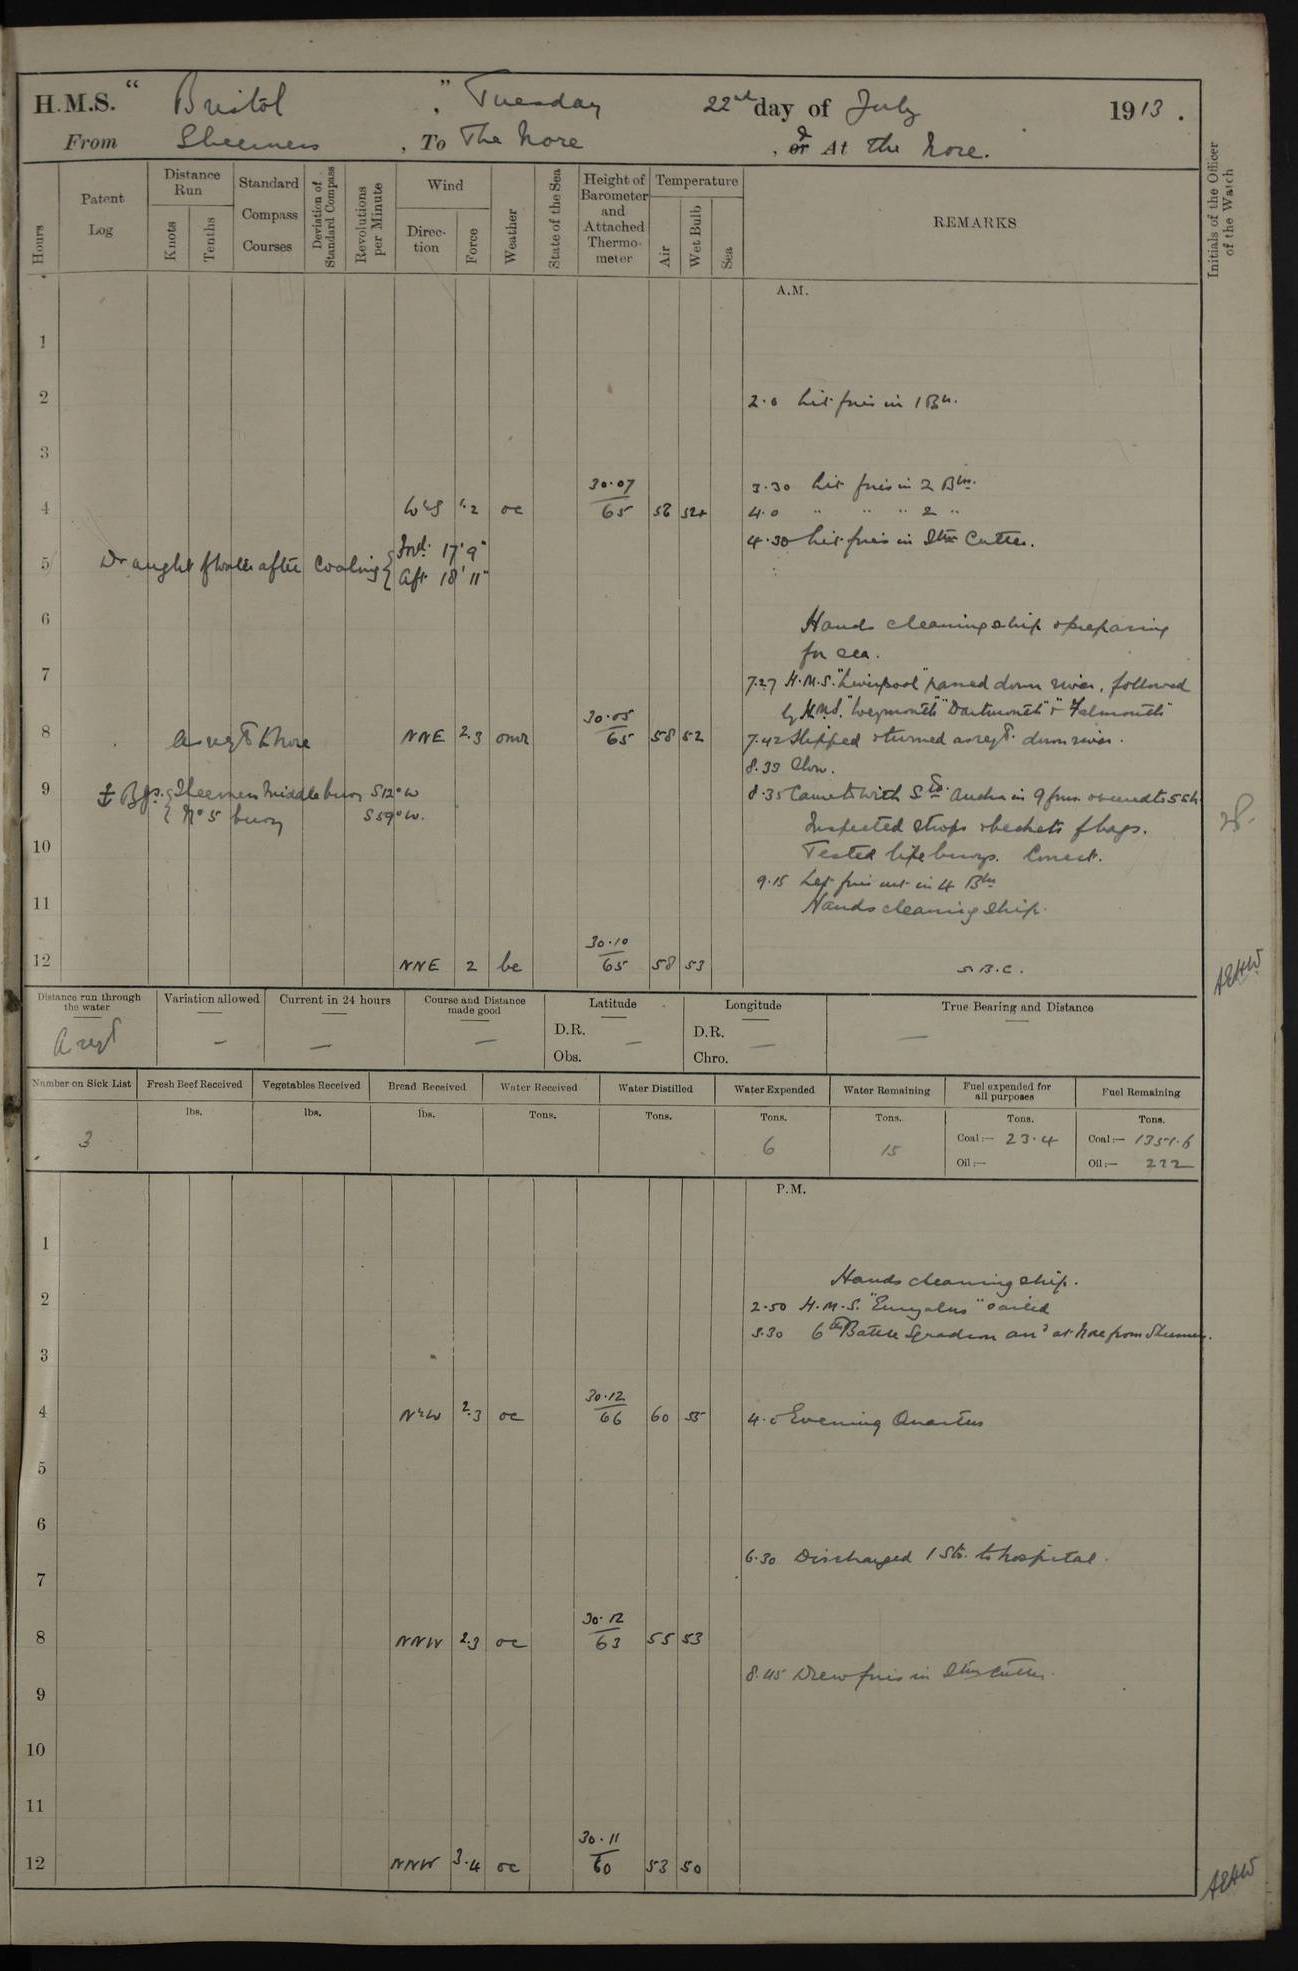 H.M.S. " Bristol ", Tuesday 22nd day of July 1913.
From Sheerness, To The Nore, or At the Nore.
Hours
Patent Log
Distance Run
Knots
Tenths
Standard Compass Courses
Deviation of Standard Compass
Revolutions per Minute
Wind
Direction
Force
Weather
State of the Sea
Height of Barometer and Attached Thermometer
Temperature
Air
Wet Bulb
Sea
REMARKS
Initials of the Officer of the Watch
A.M.
1
2 2.0 Lit fires in 1 Br.
3
3.30 Lit fires in 2 Brs.
4 WS 1.2 oc 30.07/65 58 52 4.0 " " " 2 "
4.30 Lit fires in Stm Cutter.
5 Draught of Water after Coaling { Ford: 17' 9"
Aft 18' 11"
6 Hands cleaning ship & preparing
for sea.
7 7.27 H.M.S. "Liverpool" passed down river, followed
by H.M.S. "Weymouth" "Dartmouth" & "Falmouth"
8 As reqd to Nore NNE 2.3 omr 30.05/65 58 52 7.42 Slipped & turned as reqd. down river.
8.33 Slow.
9 Bgs. { Sheerness Middle buoy S12°W 8.35 Came to with Stbd. Anchor in 9 fms.
No 5 buoy S59°W.
Inspected strops & beckets of bags.
10 Tested lifebuoys. Correct.
9.15 Let fires out in 4 Brs
11 Hands cleaning ship.
12 NNE 2 bc 30.10/65 58 53 S.B.C.
AEHW
Distance run through the water
As reqd
Variation allowed
—
Current in 24 hours
—
Course and Distance made good
—
Latitude
D.R.
Obs.
—
Longitude
D.R.
Chro.
—
True Bearing and Distance
—
Number on Sick List
3
Fresh Beef Received
lbs.
Vegetables Received
lbs.
Bread Received
lbs.
Water Received
Tons.
Water Distilled
Tons.
Water Expended
Tons.
6
Water Remaining
Tons.
15
Fuel expended for all purposes
Tons.
Coal:— 23.4
Oil:—
Fuel Remaining
Tons.
Coal:— 1351.6
Oil:— 222
P.M.
1
Hands cleaning ship.
2 2.50 H.M.S. "Euryalus" sailed
3.30 6th Battle Squadron arrd at Nore from Sheerness.
3
4 NW 2.3 oc 30.12/66 60 55 4.0 Evening Quarters
5
6
6.30 Discharged 1 Sto. to hospital.
7
8 NNW 2.3 oc 30.12/63 55 53
8.45 Drew fires in Stm Cutter.
9
10
11
12 NNW 3.4 oc 30.11/60 53 50
AEHW